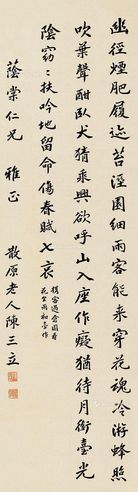 幽徑煙肥履迹苔淫園細雨客能來穿花魂冷游蜂照
吹葉聲酣臥犬猜乘興欲呼山入座作癡猶待月銜臺光
陰竊竊扶吟地留命傷春賦七哀
花生雨初臺作
蔭棠仁兄 雅正
散原老人陳三立